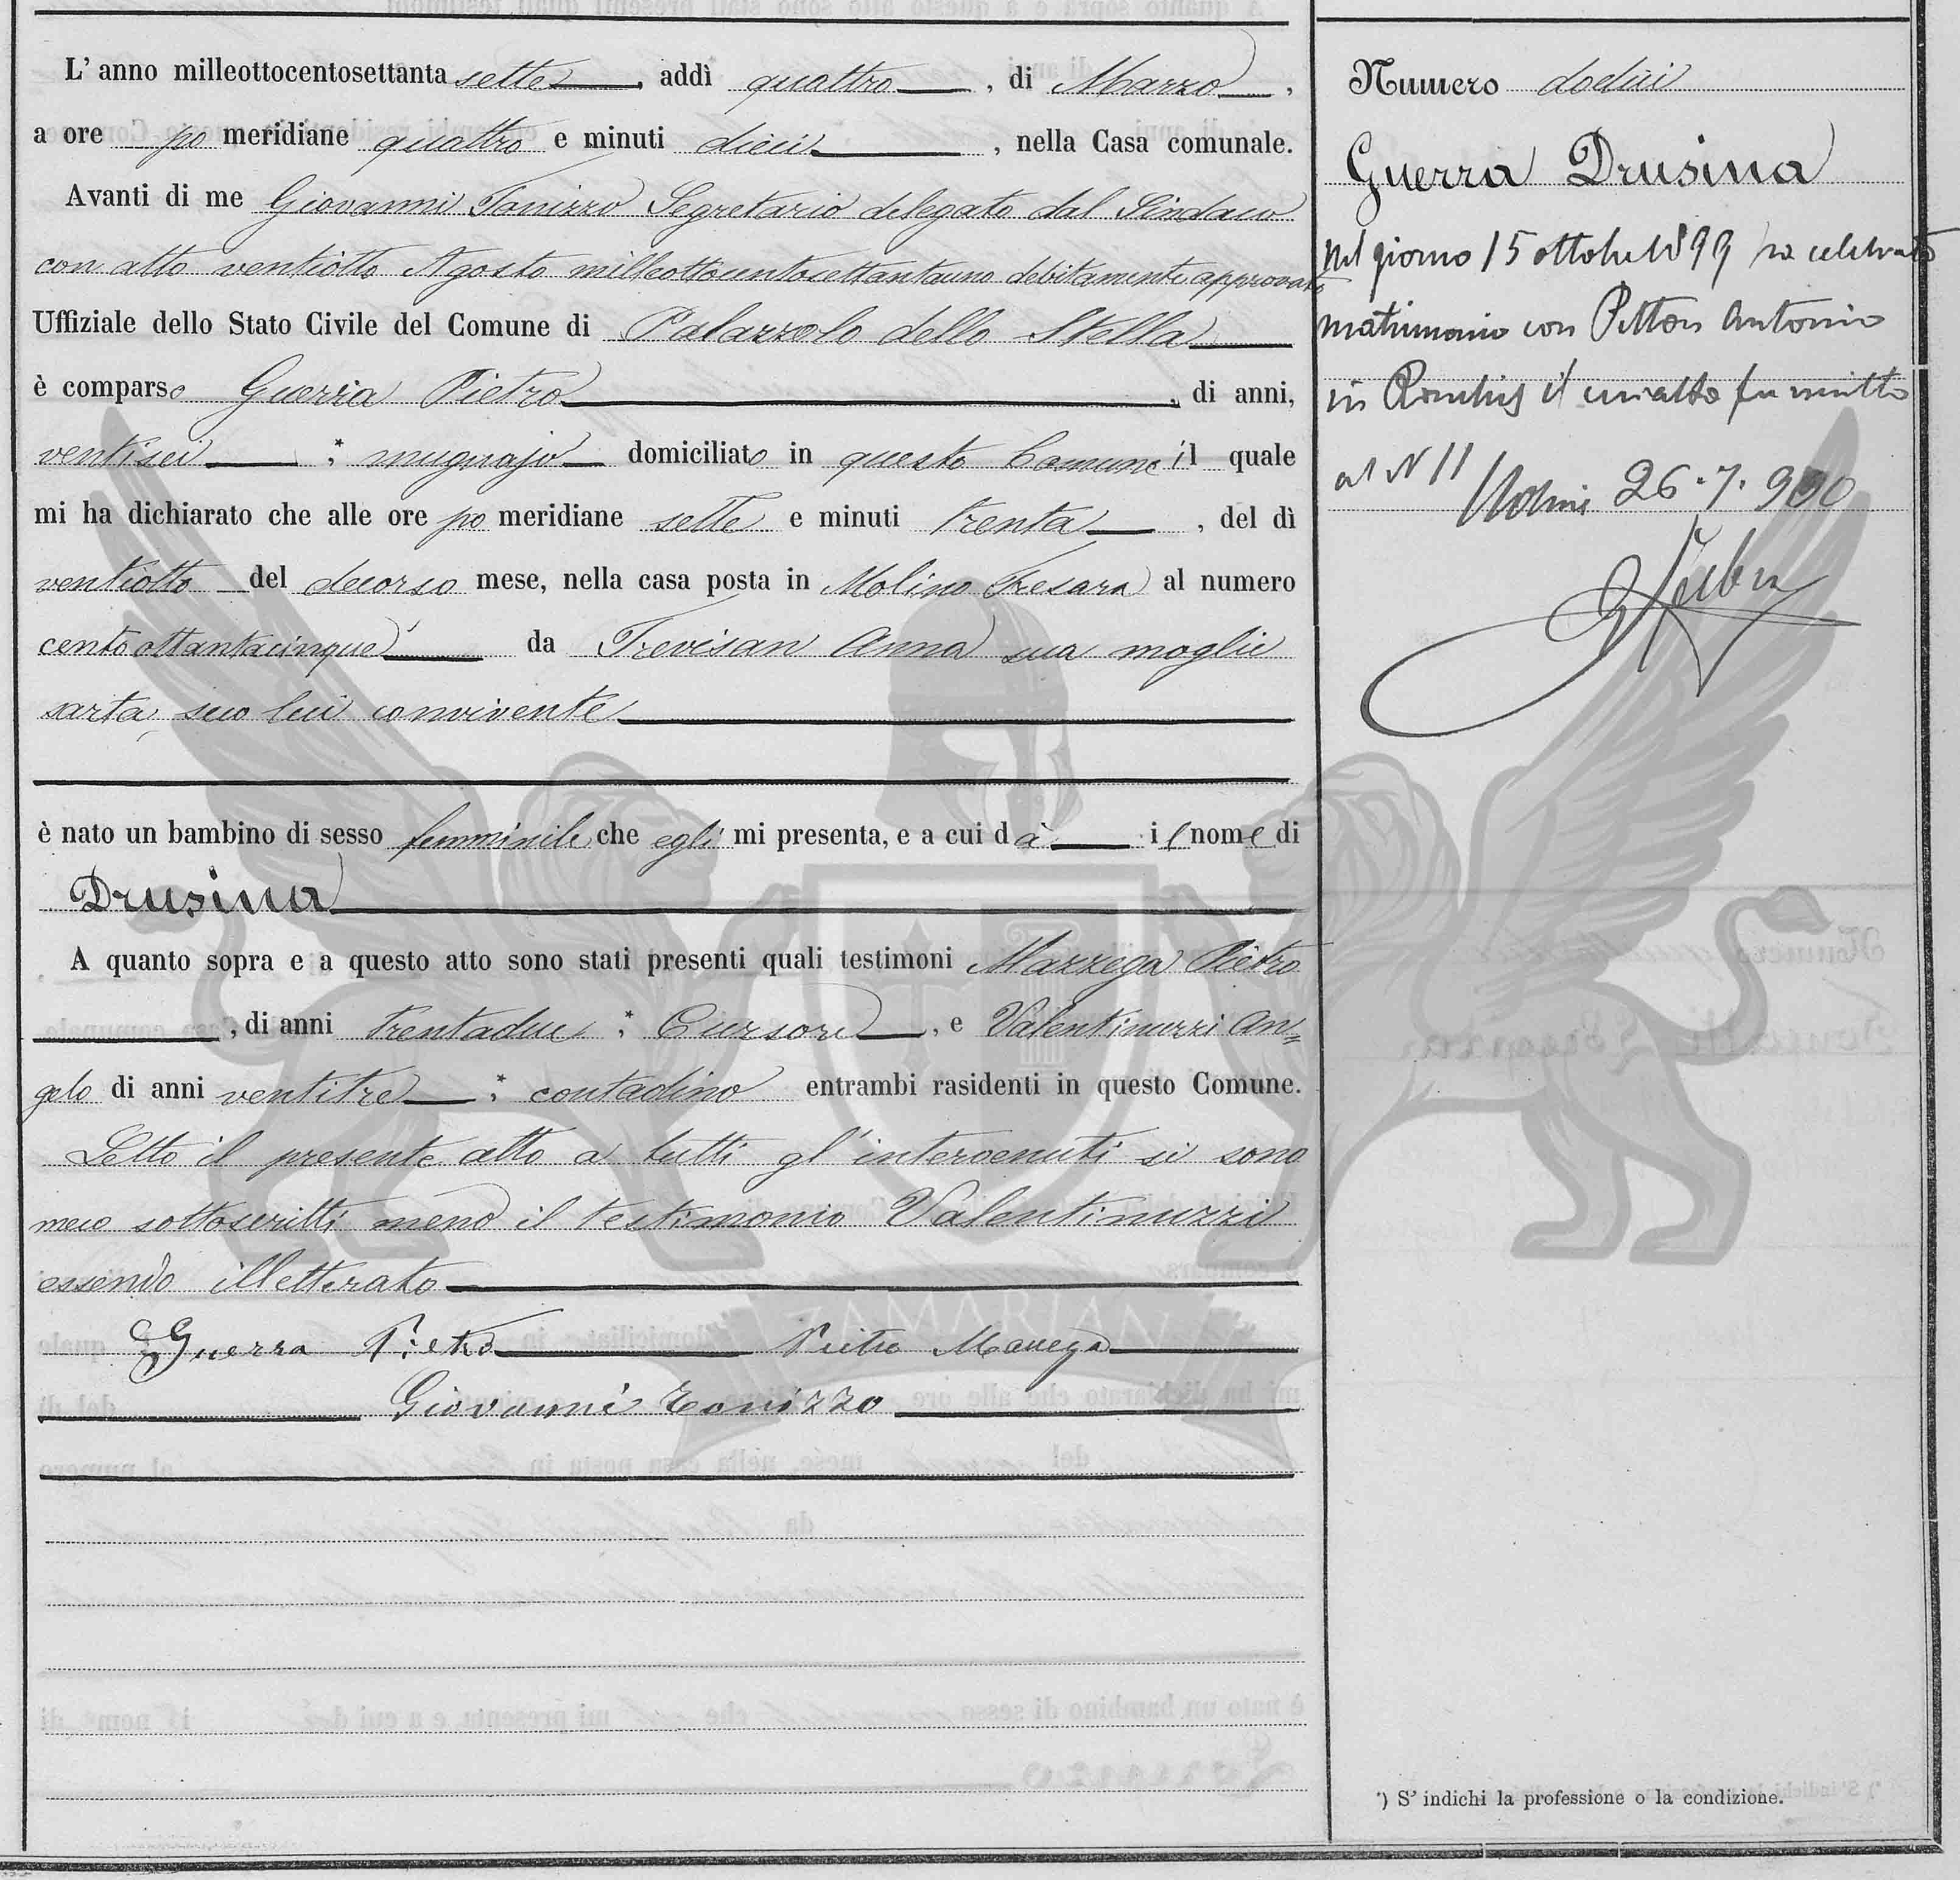 L' anno milleottocentosettanta sette, addì quattro, di Marzo,
a ore po meridiane quattro e minuti dieci, nella Casa comunale.
Avanti di me Giovanni Tonizzo Segretario delegato dal Sindaco
con atto ventiotto Agosto milleottocentosettantauno debitamente approvato
Uffiziale dello Stato Civile del Comune di Palazzolo dello Stella
è comparso Guerra Pietro, di anni,
ventisei ; * mugnajo domiciliato in questo Comune il quale
mi ha dichiarato che alle ore po meridiane sette e minuti trenta, del dì
ventiotto del decorso mese, nella casa posta in Molino Fresara al numero
centoottantacinque da Trevisan Anna sua moglie
sarta, seco lui convivente
è nato un bambino di sesso femminile che egli mi presenta, e a cui dà il nome di
Drusina
A quanto sopra e a questo atto sono stati presenti quali testimoni Mazzega Pietro
, di anni trentadue ; * Cursore, e Valentinuzzi An=
gelo di anni ventitre ; * contadino entrambi rasidenti in questo Comune.
Letto il presente atto a tutti gl'intervenuti si sono
meco sottoscritti meno il testimonio Valentinuzzi
essendo illetterato
Guerra Pietro Pietro Mazzega
Giovanni Tonizzo
ZAMARIAN
Numero dodici
Guerra Drusina
Nel giorno 15 ottobre 1899 ha celebrato
matrimonio con Pitton Antonio
in Ronchis il cui atto fu iscritto
al N 11
Udine 26.7.900
*) S' indichi la professione o la condizione.